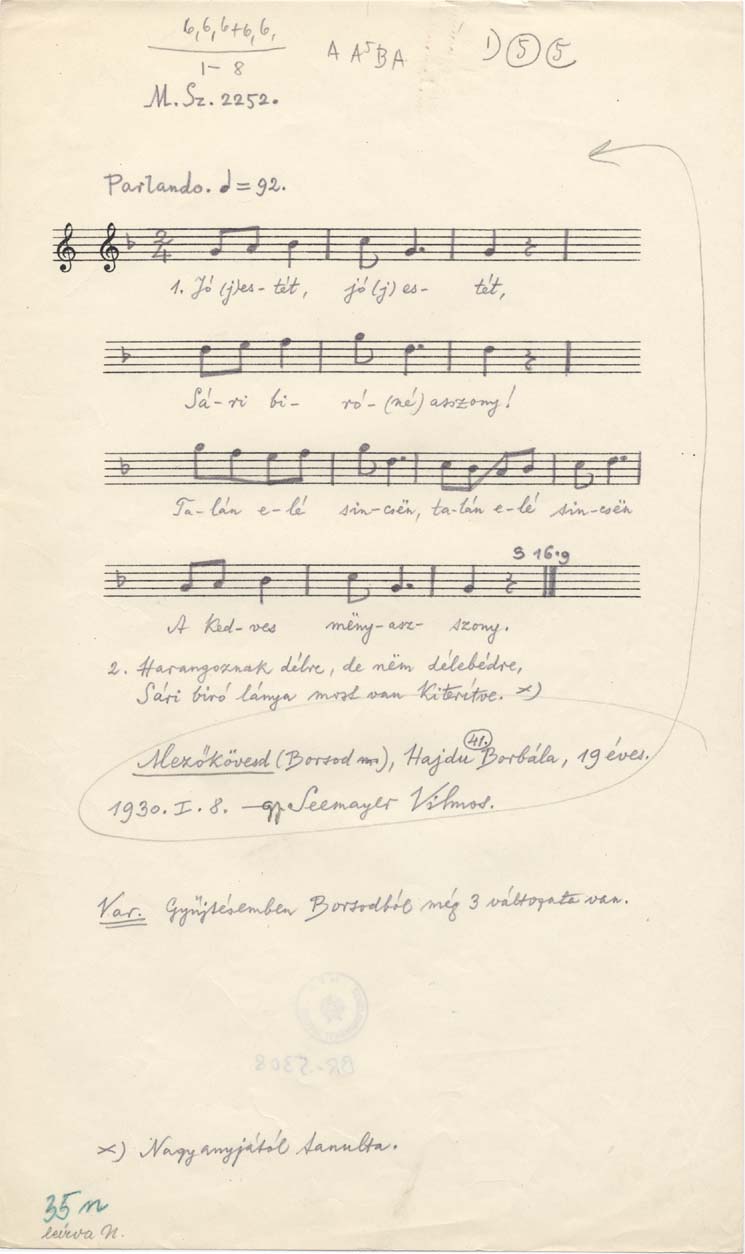 6,6,6+6,6,
1- 8
A A⁵ B A
1) 5 5
M.Sz. 2252.
Parlando. ♩=92.
2/4
1. Jó (j)es- tét, jó (j) es- tét,
Sá- ri bi- ró- (né) asszony!
Ta-lán e-lé sin-csën, ta-lán e-lé sin-csën
3 16.g
A ked-ves mëny-asz- szony.
2. Harangoznak délre, de nëm délebédre,
Sári biró lánya most van kiterítve. x)
Mezőkövesd (Borsod m.), Hajdu Borbála, 19 éves.
41.
1930. I. 8. – gy Seemayer Vilmos.
Var. Gyűjtésemben Borsodból még 3 változata van.
BR-5308
x) Nagyanyjától tanulta.
35 n
leírva N.